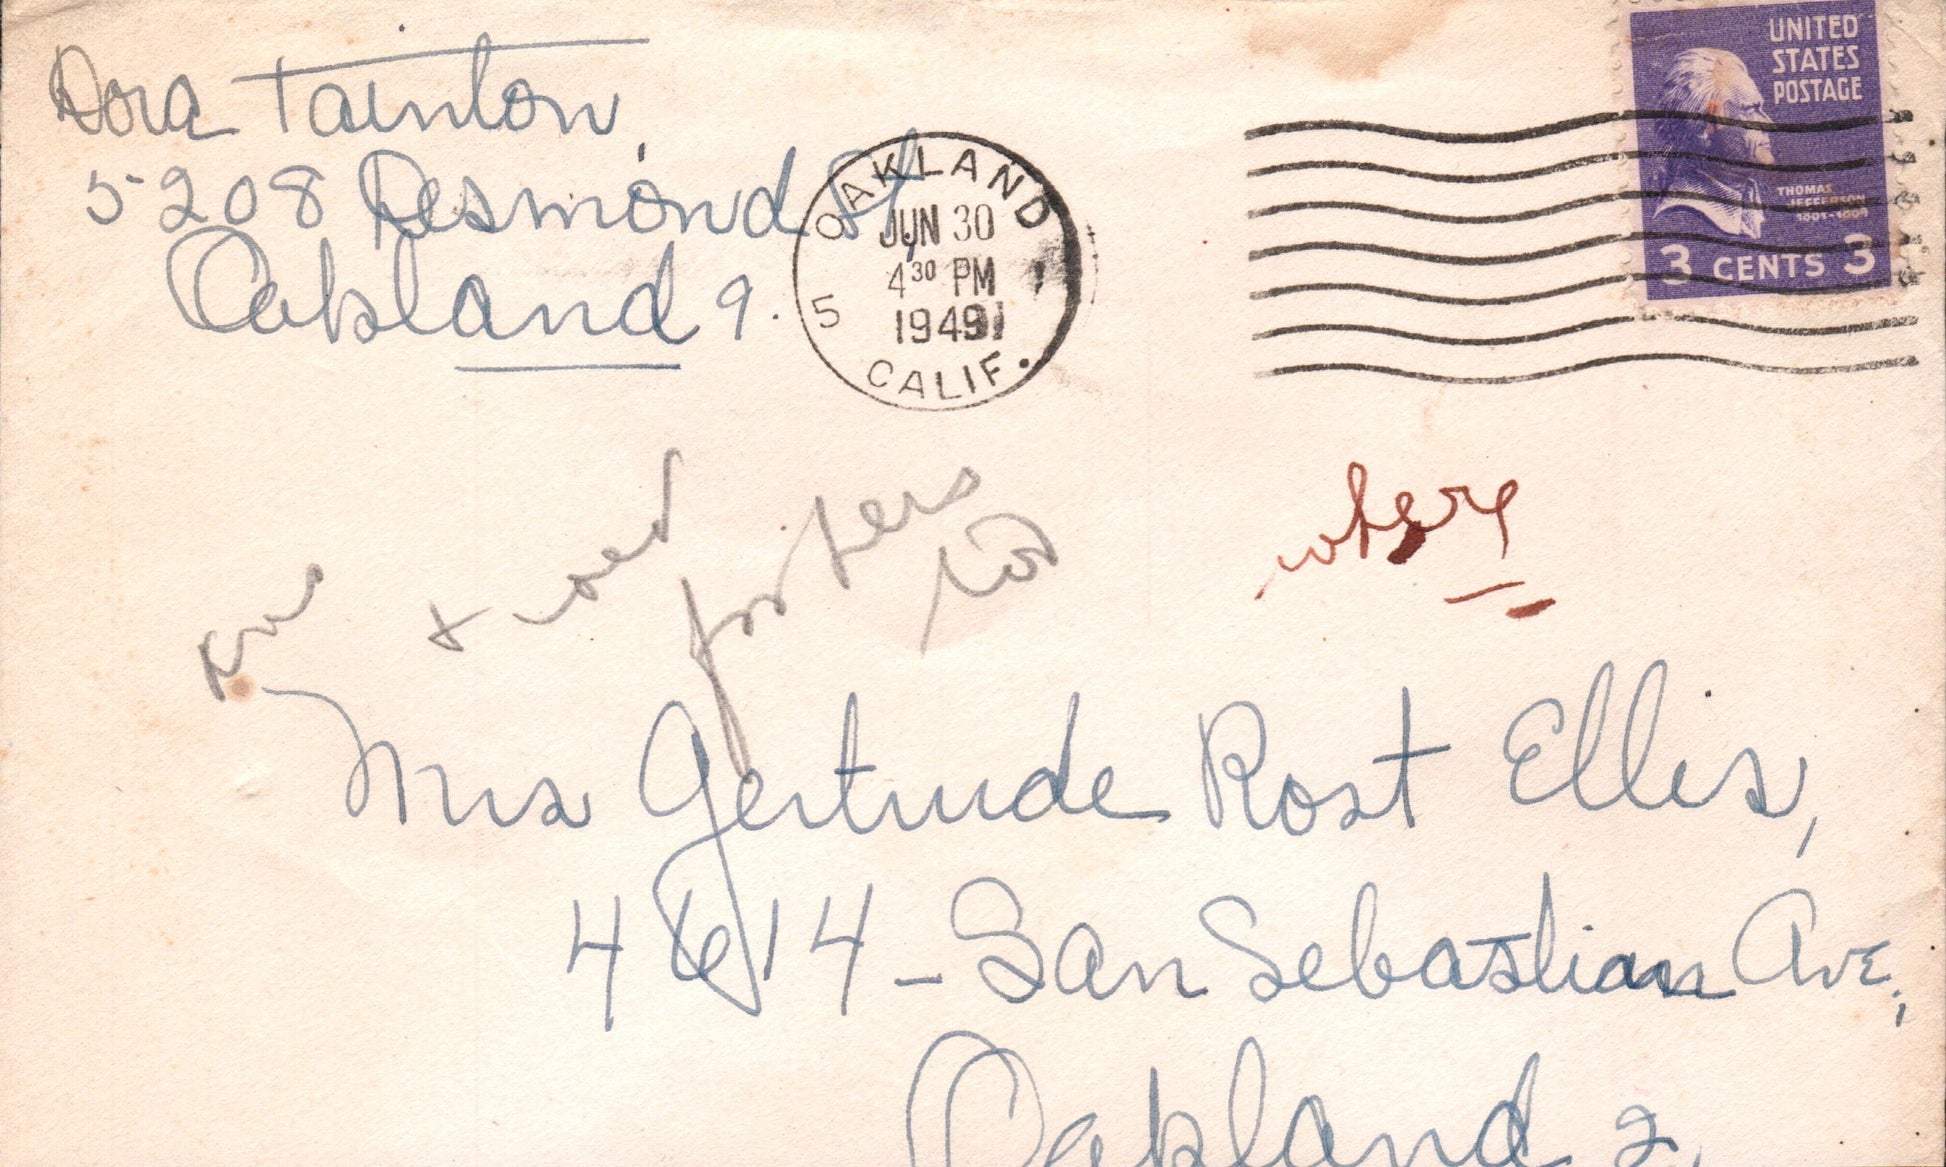 Dora Tainton,
5208 Desmond St,
Oakland 9.
OAKLAND
JUN 30
4 30 PM
1949
5
CALIF.
UNITED
STATES
POSTAGE
THOMAS
JEFFERSON
1801-1809
3 CENTS 3
where
Mrs Gertrude Rost Ellis,
4614 - San Sebastian Ave.,
Oakland 2,